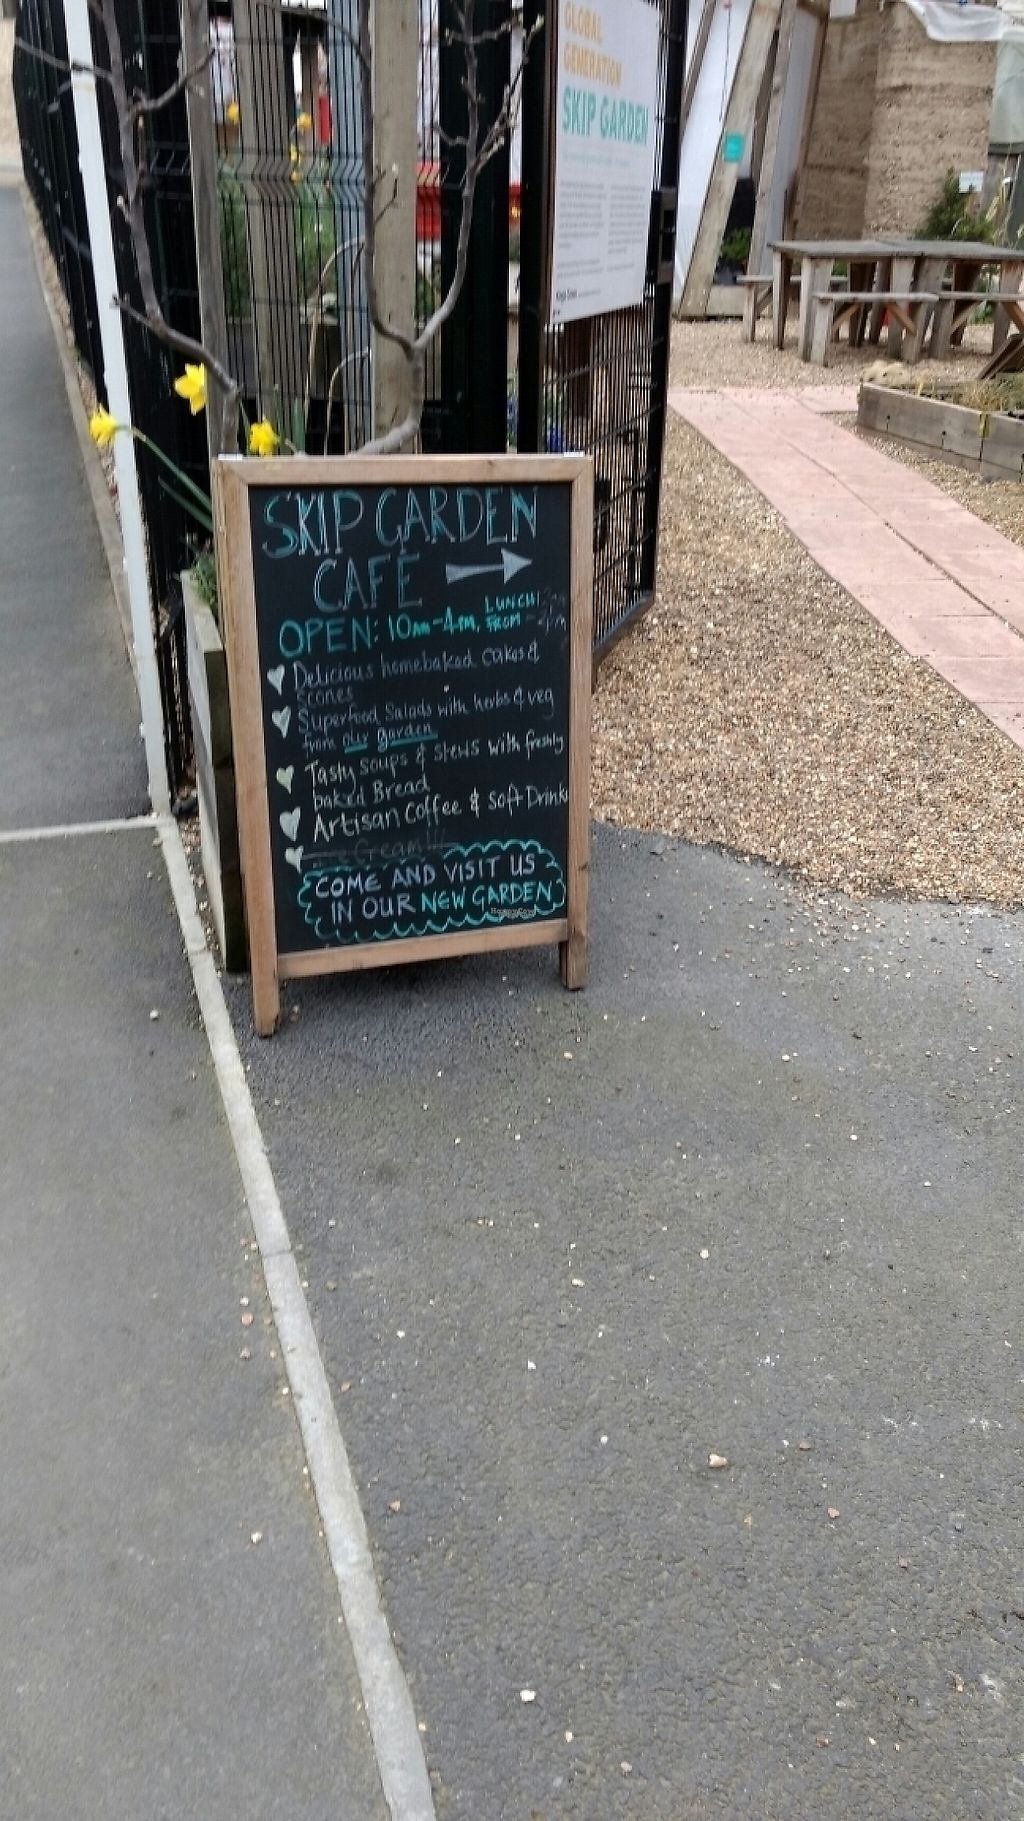 GLOBAL
GENERATION
SKIP GARDEN
SKIP GARDEN
CAFE
OPEN: 10am-4pm, LUNCH
FROM
Delicious homebaked cakes &
Scones
Superfood Salads with herbs & veg
from our garden
Tasty soups & stews with freshly
baked Bread
Artisan Coffee & Soft Drinks
Ice Cream!!!
COME AND VISIT US
IN OUR NEW GARDEN
HappyCow